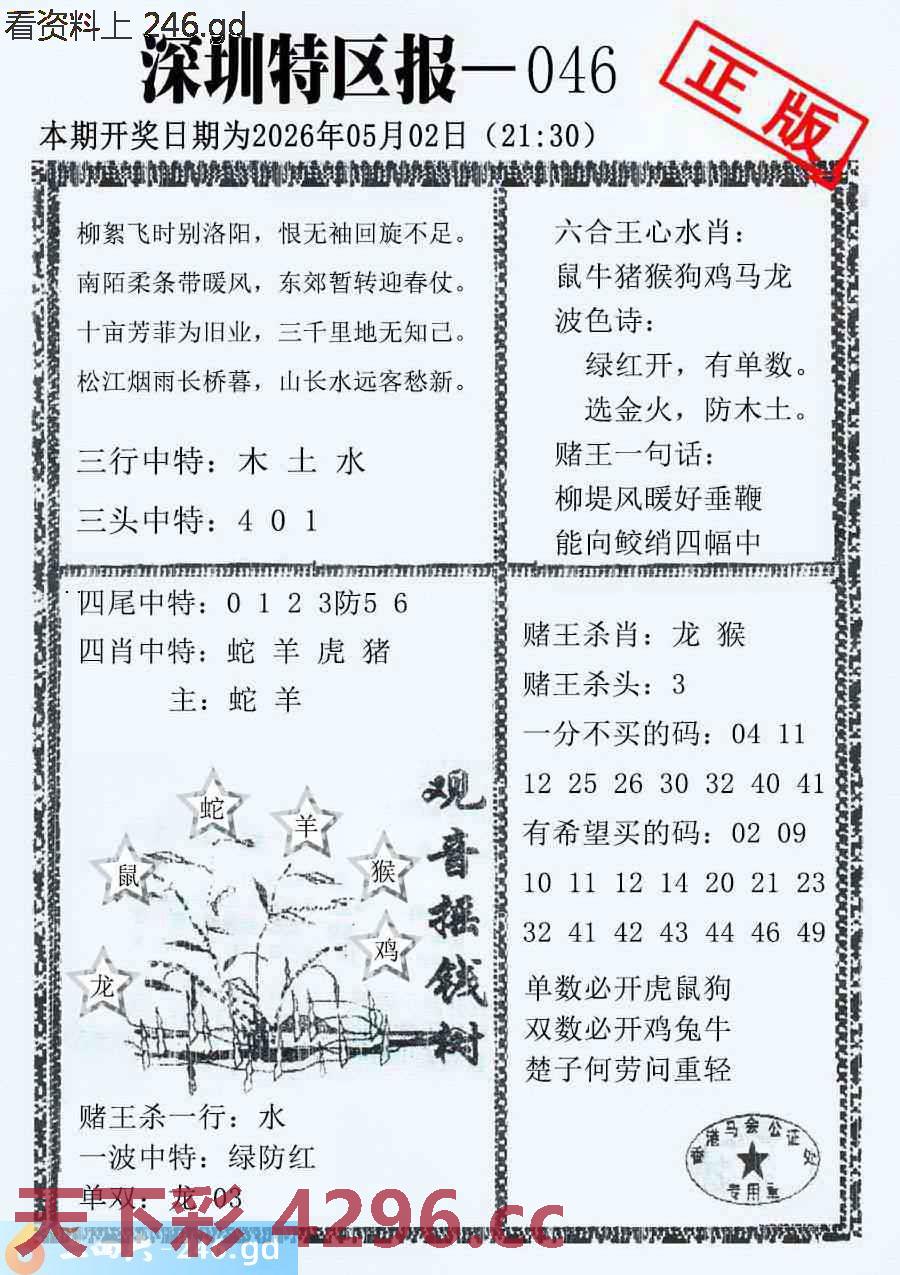 看资料上 246.gd
深圳特区报—046
正版
本期开奖日期为2026年05月02日（21:30）
柳絮飞时别洛阳，恨无袖回旋不足。
南陌柔条带暖风，东郊暂转迎春仗。
十亩芳菲为旧业，三千里地无知己。
松江烟雨长桥暮，山长水远客愁新。
三行中特：木 土 水
三头中特：4 0 1
六合王心水肖：
鼠牛猪猴狗鸡马龙
波色诗：
绿红开，有单数。
选金火，防木土。
赌王一句话：
柳堤风暖好垂鞭
能向鲛绡四幅中
四尾中特：0 1 2 3防5 6
四肖中特：蛇 羊 虎 猪
主：蛇 羊
观音摇钱树
蛇
羊
鼠
猴
鸡
龙
赌王杀一行：水
一波中特：绿防红
单双：龙 03
赌王杀肖：龙 猴
赌王杀头：3
一分不买的码：04 11
12 25 26 30 32 40 41
有希望买的码：02 09
10 11 12 14 20 21 23
32 41 42 43 44 46 49
单数必开虎鼠狗
双数必开鸡兔牛
楚子何劳问重轻
香港马会公证处
专用章
天下彩 4296.cc
246.gd